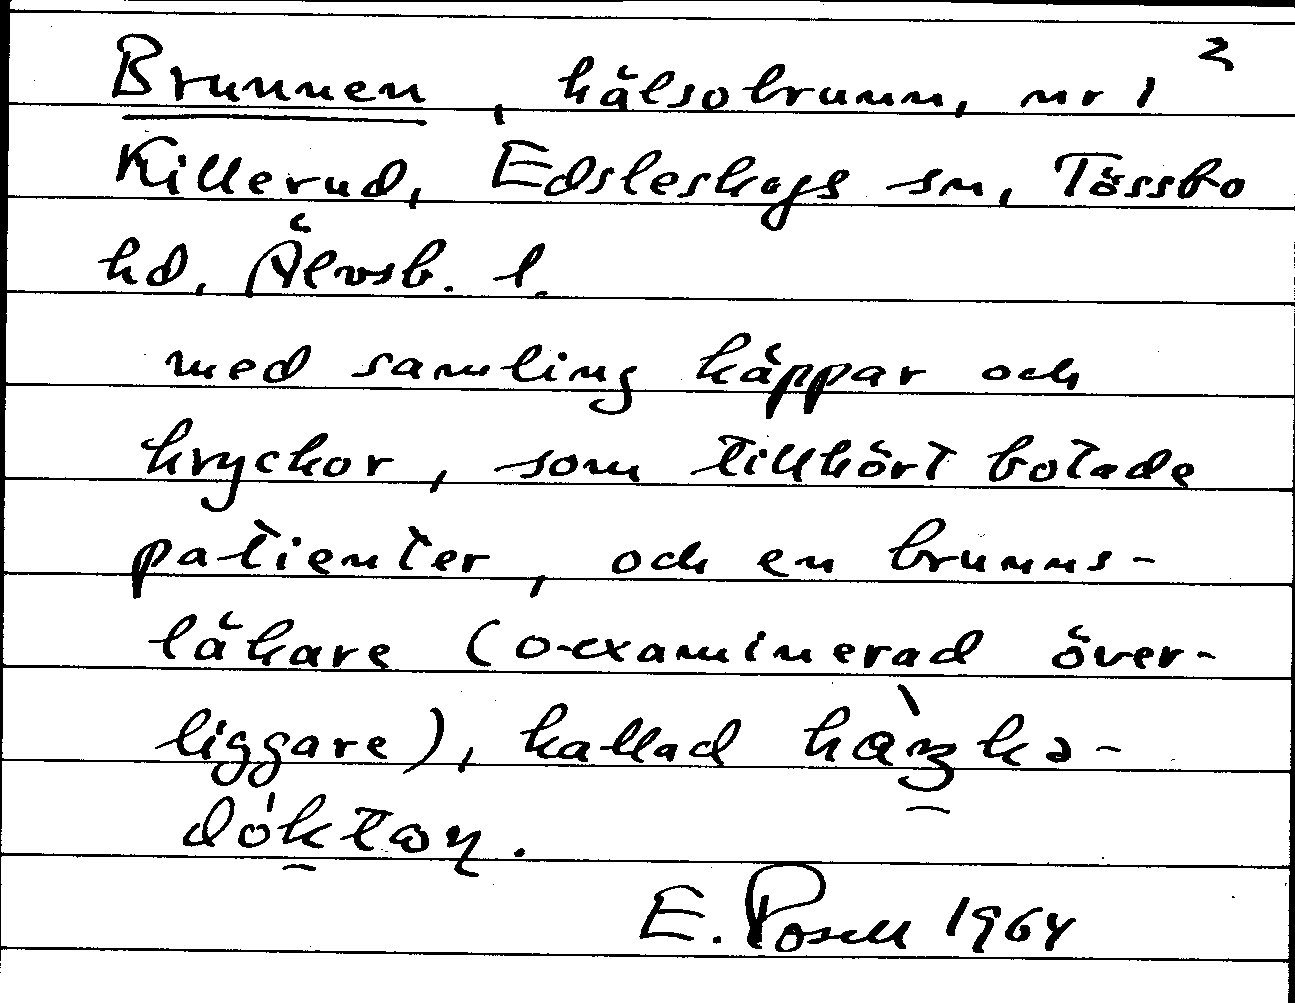 Brunnen, hälsobrunn, nr 1²
Killerud, Edsleskogs sn, Tössbo
hd, Älvsb. l.
med samling käppar och
kryckor, som tillhört botade
patienter, och en brunns-
läkare (o-examinerad över-
liggare), kallad
E. Posell 1964